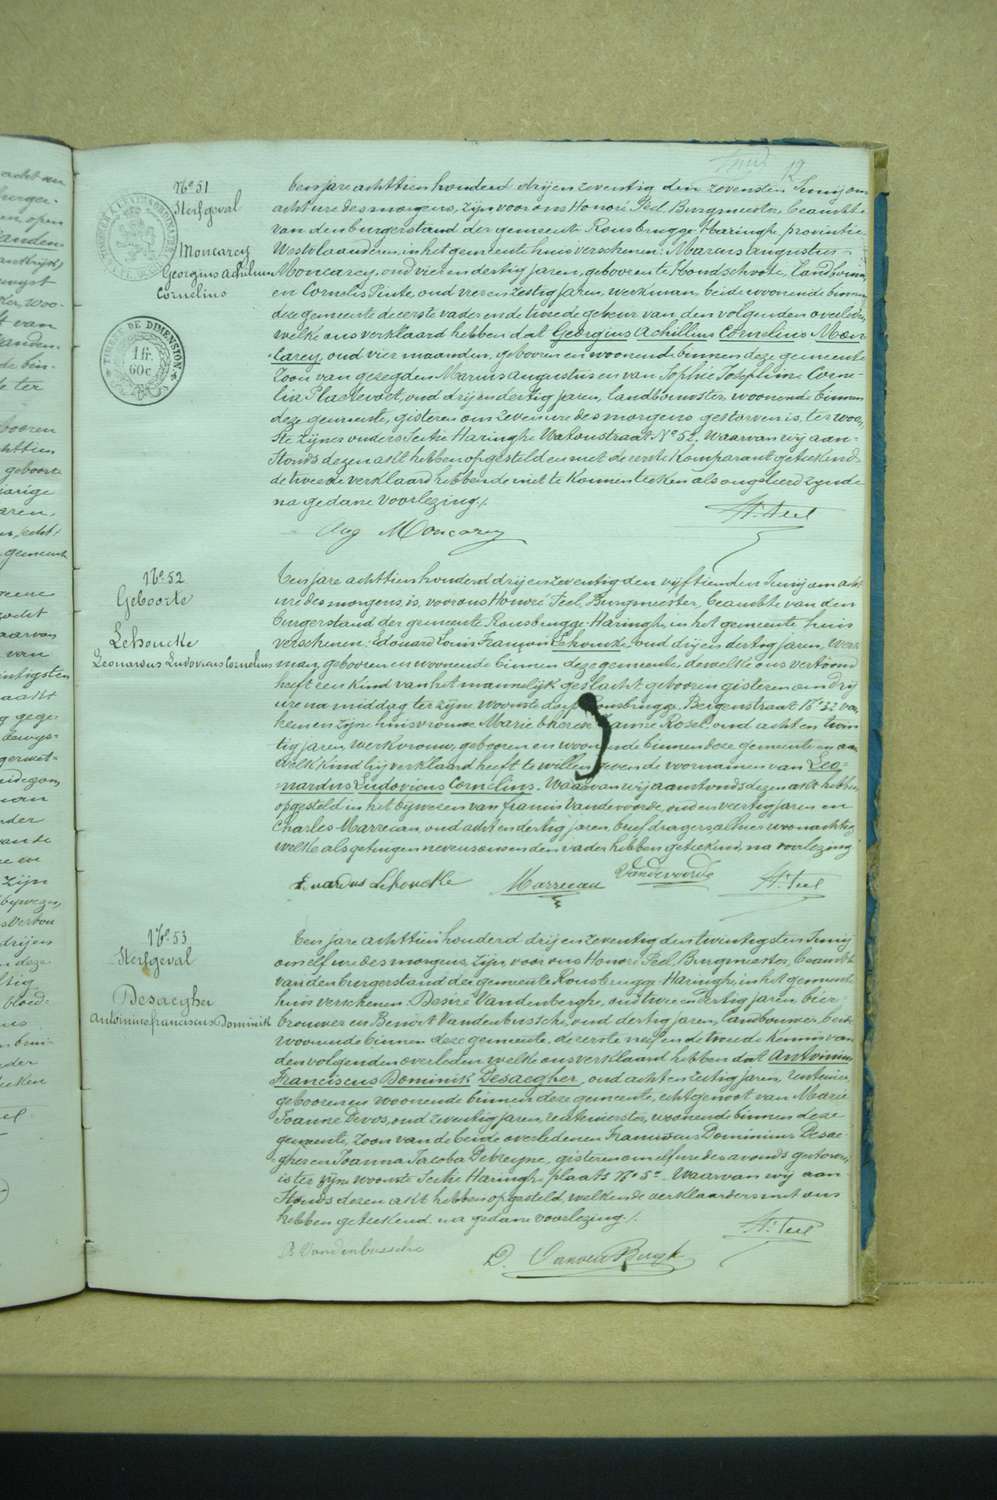 12
Nº 51
Sterfgeval
Moncarey
Georgius Achillius
Cornelius
TIMBRE DE DIMENSION
1 fr.
60 c
Ten jare achttien honderd drij en zeventig den zevensten Junij om
acht ure des morgens, zijn voor ons Honoré Feel, Burgmeester, Beambte
van den burgerstand der gemeente Rousbrugge-Haringhe, provintie
Westvlaanderen, in het gemeente huis verschenen: Marius Augustus
Moncarey, oud vier en dertig jaren, geboren te Hondschoote, Landbouwer,
en Cornelis Pinte, oud vier en zestig jaren, werkman, beide woonende binnen
deze gemeente de eerste vader en de tweede gebeur van den volgenden overleden
welke ons verklaard hebben dat Georgius Achillius Cornelius Mon-
carey, oud vier maanden, geboren en woonende binnen deze gemeente
Zoon van gezegden Marius Augustus en van Sophie Josephine Corne-
lia Plaetevoet, oud drij en dertig jaren, landbouwster, woonende binnen
deze gemeente, gisteren om zeven ure des morgens gestorven is, ter woon-
ste zijner ouders Sectie Haringhe Watoustraat Nº 52. Waarvan wij aan-
stonds dezen akt hebben opgesteld en met de eerste Komparant geteekend
de tweede verklaard hebbende niet te konnen teeken als ongeleerd zynde
na gedane voorlezing /.
Aug Moncarey
H. Feel
Nº 52
Geboorte
Lehoucke
Leonardus Ludovicus Cornelius
Ten jare achttien honderd drij en zeventig den vijftienden Junij om acht
ure des morgens, is, voor ons Honoré Feel, Burgmeester, Beambte van den
burgerstand der gemeente Rousbrugge-Haringhe, in het gemeente huis
verschenen: Edouard Louis François Lehoucke, oud drij en dertig jaren, werk
man, geboren en woonende binnen deze gemeente, dewelke ons vertoond
heeft een Kind van het mannelijk geslacht geboren gisteren om drij
ure na middag ter zijne woonste dorp Rousbrugge, Bergenstraat Nº 32 van
hem en zijne huisvrouw Marie Thérèse Jeanne Rosel, oud acht en twin
tig jaren, werkvrouw, geboren en woonende binnen deze gemeente en aan
welk kind hij verklaard heeft te willen geven de voornamen van Leo-
nardus Ludovicus Cornelius. Waarvan wij aanstonds dezen akt hebben
opgesteld in het bijwezen van francis Vandevoorde, oud en veertig jaren en
Charles Marrecau, oud acht en dertig jaren, briefdragers alhier woonachtig
welke als getuigen nevens ons en den vader hebben geteekend, na voorlezing
Eduardus Lehoucke
Marrecau
Vandevoorde
H. Feel
Nº 53
Sterfgeval
Desaegher
Antoninus franciscus Dominik
Ten jare achttien honderd drij en zeventig den twintigsten Junij
om elf ure des morgens, zijn voor ons Honoré Feel, Burgmeester, Beambte
van den burgerstand der gemeente Rousbrugge-Haringhe, in het gemeente
huis verschenen: Desiré Vandenberghe, oud twee en dertig jaren, bier-
brouwer en Benoit Vandenbussche, oud dertig jaren, landbouwer, beide
woonende binnen deze gemeente, de eerste neef en de tweede kennis van
den volgenden overleden welke ons verklaard hebben dat Antoninus
Franciscus Dominik Desaegher, oud acht en zestig jaren, rentenier
geboren en woonende binnen deze gemeente, echtgenoot van Marie
Joanne Devos, oud zeventig jaren, rentenierster, woonende binnen deze
gemeente, zoon van de beide overledenen Franciscus Dominicus Desae-
gher en Joanna Jacoba Debreyne, gisteren om elf ure des avonds gestorven
is ter zijne woonste Sectie Haringhe plaats Nº 5ª. Waarvan wij aan-
stonds dezen akt hebben opgesteld, welken de verklaarders met ons
hebben geteekend na gedane voorlezing /.
B Vandenbussche
D. Vanden Berghe
H. Feel